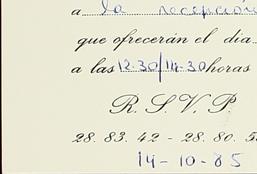 a la recepción
que ofrecerán el día
a las 12.30/14.30 horas
R. S. V. P.
28. 83. 42 - 28. 80. 5
14-10-85